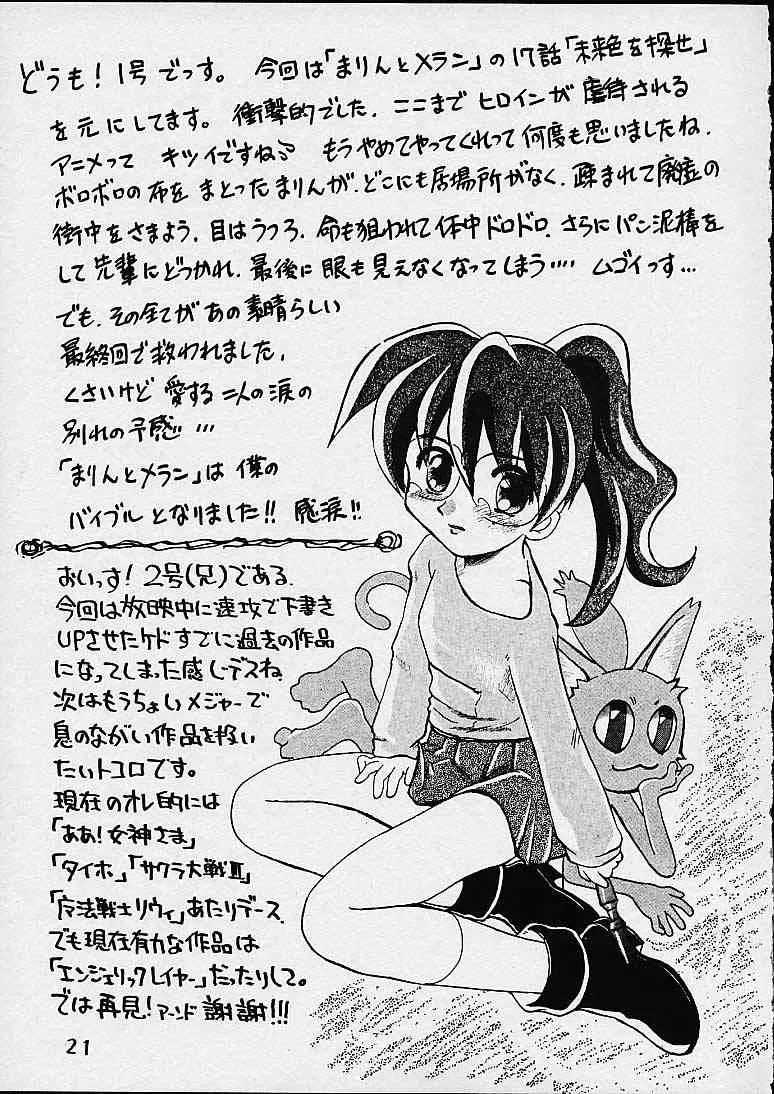 どうも！1号でっす。今回は「まりんとメラン」の17話「未来色を探せ」
を元にしてます。衝撃的でした．ここまでヒロインが虐待される
アニメって キツイですね〜 もうやめてやってくれって何度も思いましたね．
ボロボロの布をまとったまりんが．どこにも居場所がなく．疎まれて廃墟の
街中をさまよう．目はうつろ．命も狙われて体中ドロドロ．さらにパン泥棒を
して先輩にどつかれ．最後に眼も見えなくなってしまう‥‥ ムゴイっす…
でも．その全てがあの素晴らしい
最終回で救われました．
くさいけど愛する二人の涙の
別れの予感…
「まりんとメラン」は僕の
バイブルとなりました!! 感涙!!
おいっす！2号(兄)である．
今回は放映中に速攻で下書き
UPさせたケドすでに過去の作品
になってしまった感じデスね
次はもうちょいメジャーで
息のながい作品を扱い
たいトコロです。
現在のオレ的には
「ああ！女神さま」
「タイホ」「サクラ大戦Ⅲ」
「魔法戦士リウイ」あたりデース．
でも現在有力な作品は
「エンジェリックレイヤー」だったりして。
では再見！アーンド謝謝!!!
21